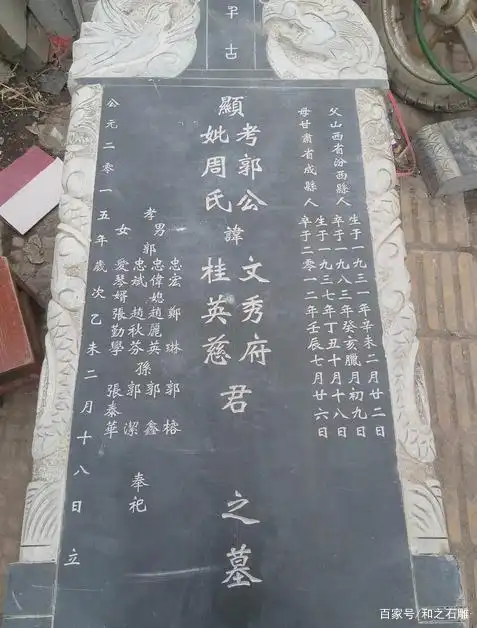 古
父山西省汾西縣人
生于一九三一年辛未二月廿二日
卒于一九八三年癸亥臘月初九日
母甘肅省成縣人
生于一九三七年丁丑十月十八日
卒于二零一二年壬辰七月廿六日
顯
考郭公
妣周氏
諱
文秀府
桂英慈
君
之墓
孝男郭
忠宏 鄭琳 郭榕
忠偉媳趙麗英孫郭鑫
忠斌 趙秋芬 郭潔
女 愛琴婿張勤學 張泰華
奉祀
公元二零一五年歲次乙未二月十八日立
百家号/和之石雕